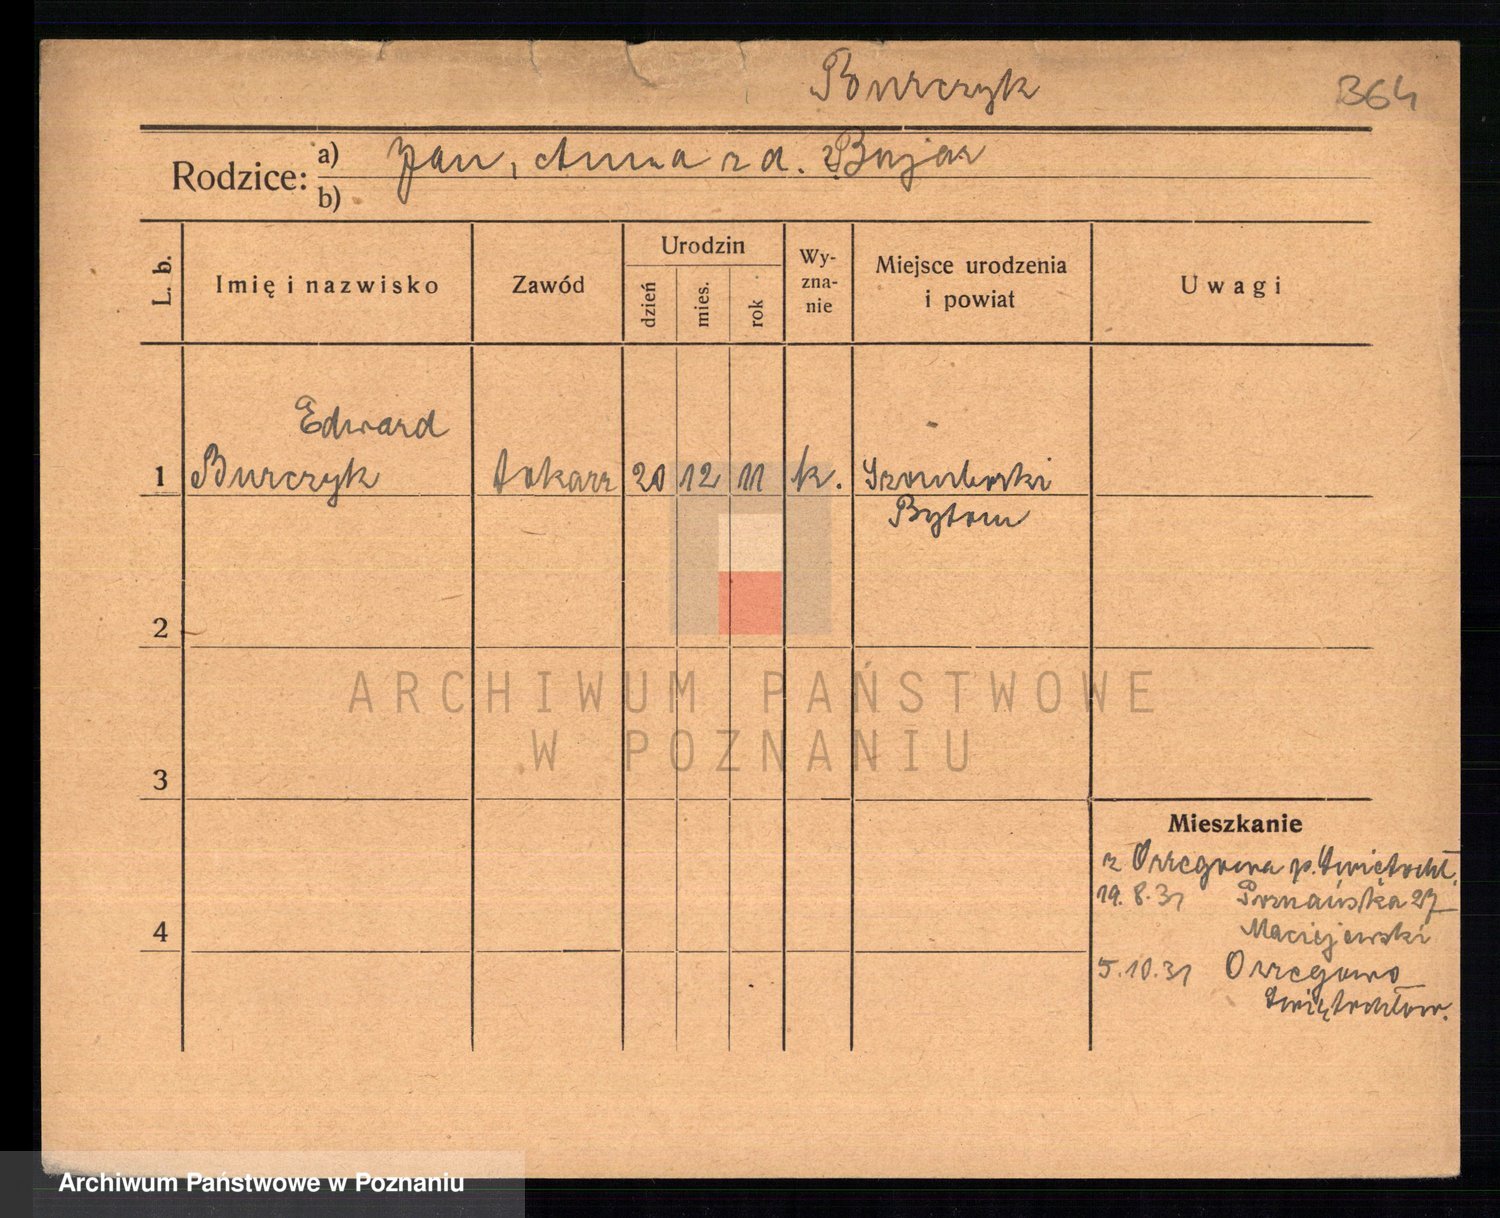 Burczyk
B64
Rodzice: a) Jan, Anna zd. Bujar
b)
L. b.
Imię i nazwisko
Zawód
Urodzin
dzień
mies.
rok
Wy-
zna-
nie
Miejsce urodzenia
i powiat
Uwagi
Edward
1 Burczyk tokarz 20 12 11 k. Szombierki
Bytom
2
3
4
Mieszkanie
z Orzegowa p. Święt​ochł.
19.8.31 Poznańska 27
Maciejewski
5.10.31 Orzegowo
Świętochłow.
ARCHIWUM PAŃSTWOWE
W POZNANIU
Archiwum Państwowe w Poznaniu